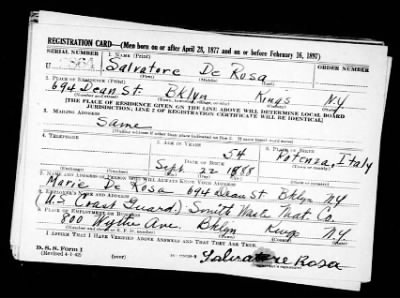 REGISTRATION CARD—(Men born on or after April 28, 1877 and on or before February 16, 1897)
SERIAL NUMBER 1. NAME (Print)
U Salvatore De Rosa
(First) (Middle) (Last)
2. PLACE OF RESIDENCE (Print)
694 Dean St Bklyn Kings NY
(Number and street) (Town, township, village, or city) (County) (State)
[THE PLACE OF RESIDENCE GIVEN ON THE LINE ABOVE WILL DETERMINE LOCAL BOARD
JURISDICTION; LINE 2 OF REGISTRATION CERTIFICATE WILL BE IDENTICAL]
3. MAILING ADDRESS
Same
[Mailing address if other than place indicated on line 2. If same insert word same]
4. TELEPHONE 5. AGE IN YEARS 6. PLACE OF BIRTH
54 Potenza, Italy
DATE OF BIRTH
Sept. 22 1888
7. NAME AND ADDRESS OF PERSON WHO WILL ALWAYS KNOW YOUR ADDRESS
Marie De Rosa 694 Dean St Bklyn NY
8. EMPLOYER'S NAME AND ADDRESS
(U.S. Coast Guard)
9. PLACE OF EMPLOYMENT OR BUSINESS
800 Wythe Ave. Bklyn Kings N.Y.
(Number and street or R. F. D. number) (Town) (County) (State)
I AFFIRM THAT I HAVE VERIFIED ABOVE ANSWERS AND THAT THEY ARE TRUE.
D. S. S. Form 1
(Revised 4-1-42)
Salvatore Rosa